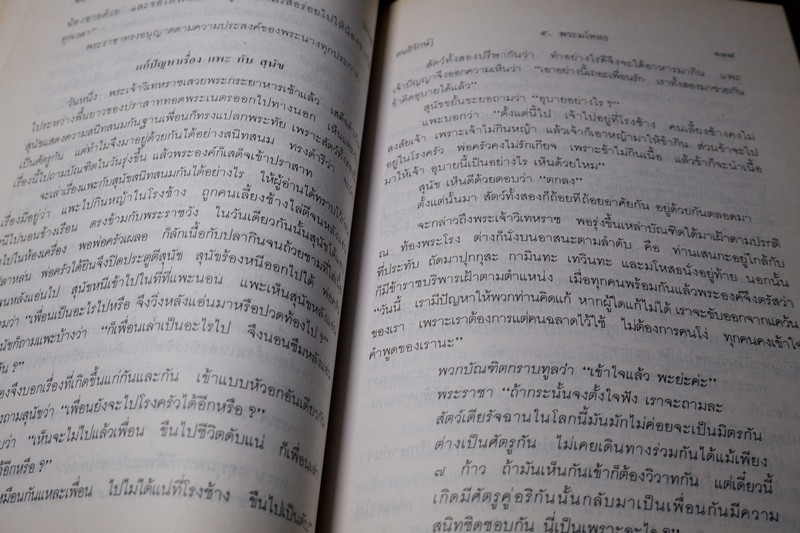 น้องชายด้วย และขอให้
ทุกเวลา"
พระราชาทรงอนุญาตตามความประสงค์ของพระนางทุกประการ
แก้ปัญหาเรื่อง แพะ กับ สุนัข
วันหนึ่ง พระเจ้าวิเทหราชเสวยพระกระยาหารเช้าแล้ว
ไประหว่างพื้นยาวของปราสาททอดพระเนตรออกไปทางนอก
สุนัขแสดงความสนิทสนมกันฐานเพื่อนก็ทรงแปลกพระทัย เพราะสัตว์
เป็นศัตรูกัน แต่ทำไมจึงมาอยู่ด้วยกันได้อย่างสนิทสนม ทรงดำริว่า
เรื่องนี้ไปถามบัณฑิตในวันรุ่งขึ้น แล้วพระองค์ก็เสด็จเข้าปราสาท
จะเล่าเรื่องแพะกับสุนัขสนิทสนมกันได้อย่างไร ให้ผู้อ่านได้ทราบ
เรื่องมีอยู่ว่า แพะไปกินหญ้าในโรงช้าง ถูกคนเลี้ยงช้างไล่ตีจน
หนีไปนอนข้างเรือน ตรงข้ามกับพระราชวัง ในวันเดียวกันนั้นสุนัข
เข้าไปในห้องเครื่อง พอพ่อครัวเผลอ ก็ลักเนื้อกับปลากินจนถ้วยชาม
พ่อครัวได้ยินจึงปิดประตูตีสุนัข สุนัขร้องหนีออกไปได้
จนหลังแอ่นไป สุนัขหนีเข้าไปในที่ที่แพะนอน แพะเห็นสุนัขหลัง
ถามว่า "เพื่อนเป็นอะไรไปหรือ จึงวิ่งหลังแอ่นมาหรือปวดท้องไป ?"
สุนัขก็ถามแพะบ้างว่า "ก็เพื่อนเล่าเป็นอะไรไป จึงนอนซึม
?"
จึงบอกเรื่องที่เกิดขึ้นแก่กันและกัน เข้าแบบหัวอกอันเดียวกัน
ถามสุนัขว่า "เพื่อนยังจะไปโรงครัวได้อีกหรือ ?"
"เห็นจะไม่ไปแล้วเพื่อน ขืนไปชีวิตดับแน่ ก็เพื่อน
อีกหรือ ?"
เหมือนกันแหละเพื่อน ไปไม่ได้แน่ที่โรงช้าง ขืนไปเป็น
สนธิรักษ์)
๕. พระมโหสถ
๑๑๗
สัตว์ทั้งสองปรึกษากันว่า ทำอย่างไรดีจึงจะได้อาหารมากิน แพะ
เจ้าปัญญาจึงออกความเห็นว่า "เอาอย่างนี้เถอะเพื่อนรัก เราทั้งสองมาช่วยกัน
ข้าคิดอุบายได้แล้ว"
สุนัขขยั้นขะยอถามว่า "อุบายอย่างไร ?"
แพะบอกว่า "ตั้งแต่นี้ไป เจ้าไปอยู่ที่โรงช้าง คนเลี้ยงช้างคงไม่
สงสัยเจ้า เพราะเจ้าไม่กินหญ้า แล้วเจ้าก็เอาหญ้ามาให้ข้ากิน ส่วนข้าจะไป
อยู่ในโรงครัว พ่อครัวคงไม่รังเกียจ เพราะข้าไม่กินเนื้อ แล้วข้าก็จะนำเนื้อ
มาให้เจ้า อุบายนี้เป็นอย่างไร เห็นด้วยไหม"
สุนัข เห็นดีด้วยตอบว่า "ตกลง"
ตั้งแต่นั้นมา สัตว์ทั้งสองก็ถ้อยทีถ้อยอาศัยกัน อยู่ด้วยกันตลอดมา
จะกล่าวถึงพระเจ้าวิเทหราช พอรุ่งขึ้นเหล่าบัณฑิตได้มาเฝ้าตามปรกติ
ณ ท้องพระโรง ต่างก็นั่งบนอาสนะตามลำดับ คือ ท่านเสนกะอยู่ใกล้กับ
ที่ประทับ ถัดมาปุกกุสะ กามินทะ เทวินทะ และมโหสถนั่งอยู่ท้าย นอกนั้น
ก็มีข้าราชบริพารเฝ้าตามตำแหน่ง เมื่อทุกคนพร้อมกันแล้วพระองค์จึงตรัสว่า
"วันนี้ เรามีปัญหาให้พวกท่านคิดแก้ หากผู้ใดแก้ไม่ได้ เราจะขับออกจากแคว้น
ของเรา เพราะเราต้องการแต่คนฉลาดไว้ใช้ ไม่ต้องการคนโง่ ทุกคนคงเข้าใจ
คำพูดของเรานะ"
พวกบัณฑิตกราบทูลว่า "เข้าใจแล้ว พะย่ะค่ะ"
พระราชา "ถ้ากระนั้นจงตั้งใจฟัง เราจะถามละ
สัตว์เดียรัจฉานในโลกนี้มันมักไม่ค่อยจะเป็นมิตรกัน
ต่างเป็นศัตรูกัน ไม่เคยเดินทางร่วมกันได้แม้เพียง
๗ ก้าว ถ้ามันเห็นกันเข้าก็ต้องวิวาทกัน แต่เดี๋ยวนี้
เกิดมีศัตรูคู่อริกันนั้นกลับมาเป็นเพื่อนกันมีความ
สนิทชิดชอบกัน นี่เป็นเพราะอะไร ?